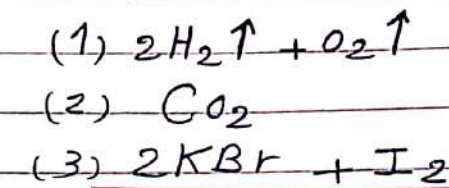 (1) 2H₂↑ + O₂↑
(2) CO₂
(3) 2KBr + I₂